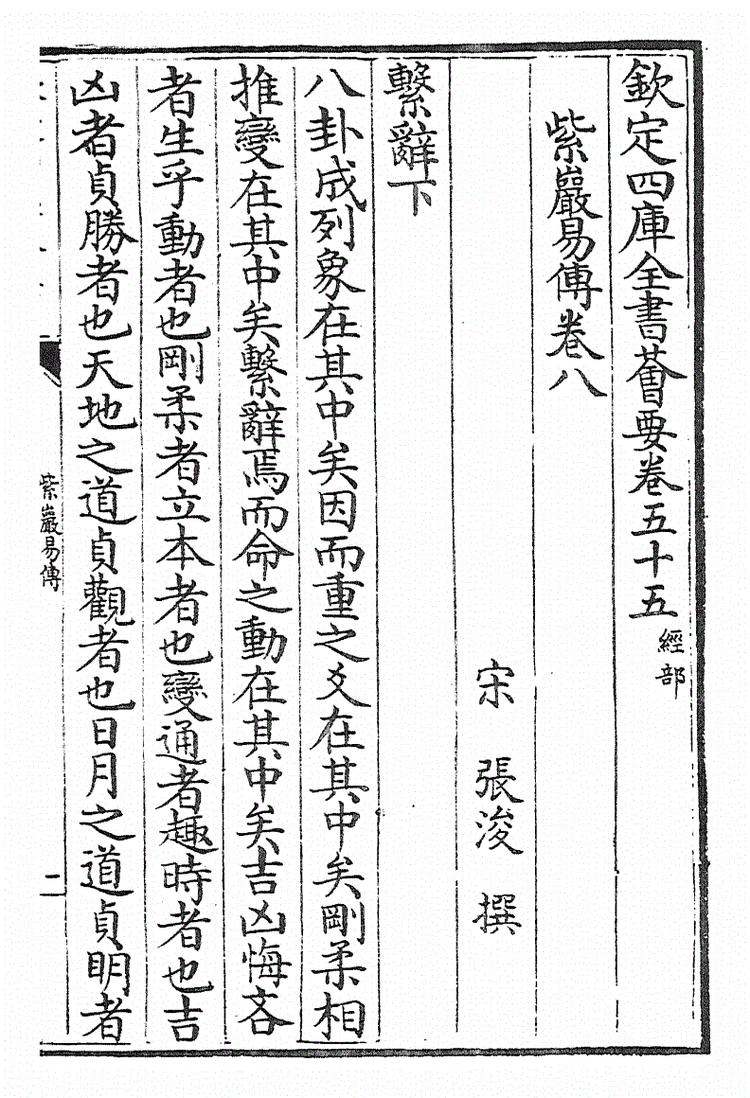 欽定四庫全書薈要卷五十五經部
紫巖易傳卷八
宋 張浚 撰
繫辭下
八卦成列象在其中矣因而重之爻在其中矣剛柔相
推變在其中矣繫辭焉而命之動在其中矣吉凶悔吝
者生乎動者也剛柔者立本者也變通者趣時者也吉
凶者貞勝者也天地之道貞觀者也日月之道貞明者
紫巖易傳
二